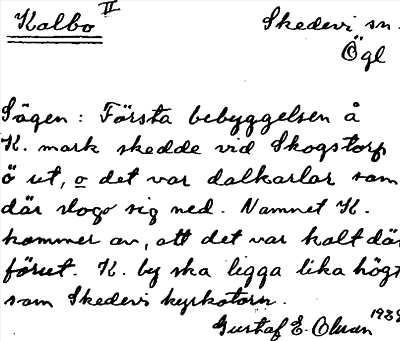 Kalbo II
Skedevi sn.
Ögl
Sägen: Första bebyggelsen å
K. mark skedde vid Skogstorp
ö ut, o det var dalkarlar som
där slogo sig ned. Namnet K.
kommer av, att det var kalt där
förut. K. by ska ligga lika högt
som Skedevi kyrkotorn.
Gustaf E. Olsson 1939